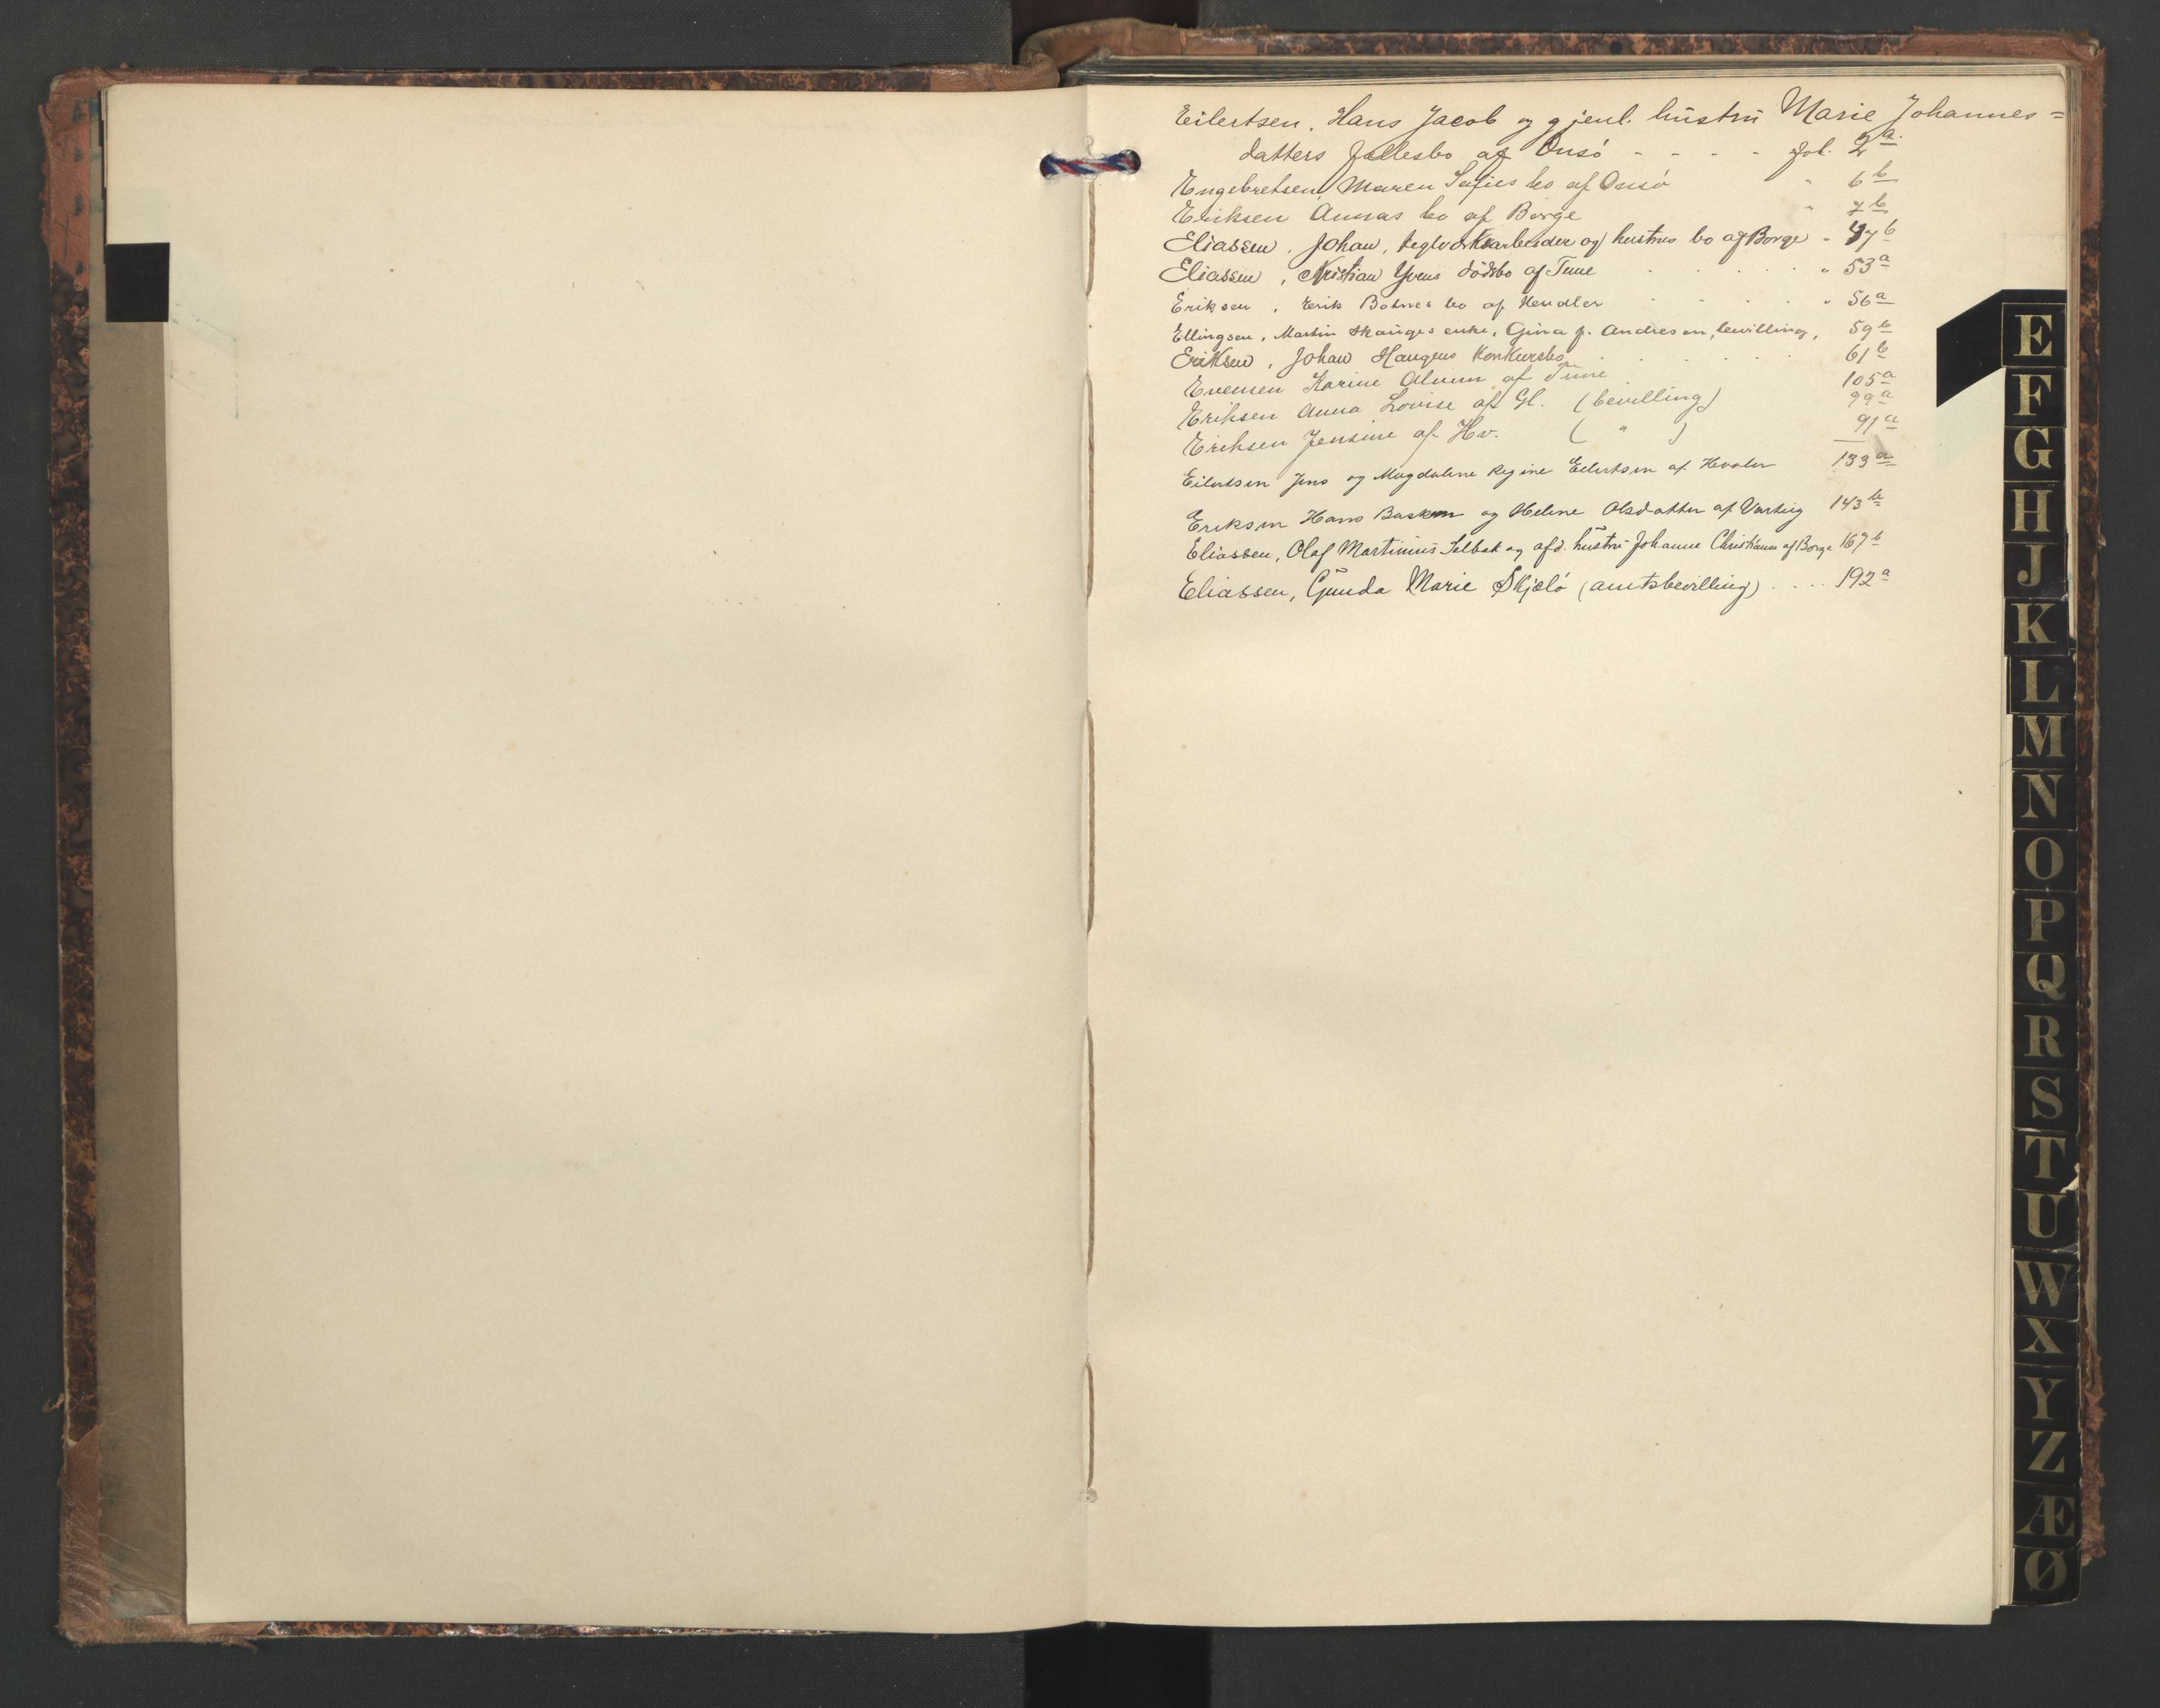 Eilertsen, Hans Jacob og gjenl. hustru Marie Johannes=
datters fællesbo af Onsö - - - - fol. 2a.
Engebretsen, Maren Sofies bo af Onsö " 6b
Eriksen Annas bo af Borge " 7b
Eliassen, Johan, teglverksarbeider og hustrus bo af Borge " 47b
Eliassen, Kristian Yvens dödsbo af Tune . . . . " 53a
Eriksen, Erik Botnes bo af Hvaler . . . . " 56a
Ellingsen, Martin Skauges enke, Gina f. Andresen, bevilling, 59b
Eriksen, Johan Haugens Konkursbo . . . . . 61b
Evensen Karine Alvim af Tune 105a
Eriksen Anna Lovise af Gl. (bevilling) 99a
Eriksen Jensine af Hv. ( " ) 91a
Eilertsen Jens og Magdalene Regine Eilertsen af Hvaler 133a
Eriksen Hans Basken og Helene Olsdatter af Varteig 143b
Eliassen, Olaf Martinius Selbak og afd. hustru Johanne Christiansen af Borge 167b
Eliassen, Gunda Marie Skjælö (amtsbevilling) . . . . 192a
E
F
G
H
J
K
L
M
N
O
P
Q
R
S
T
U
W
X
Y
Z
Æ
Ø